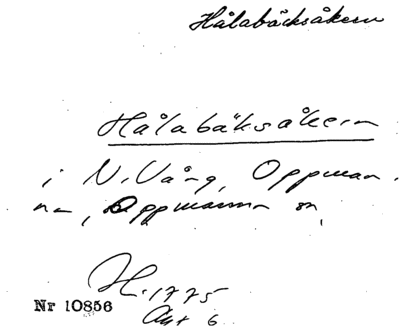 Hålabäcksåkern
Hålabäksåkern
i N. Vång, Oppman
na, Oppmanna sn,
H. 1775
Akt 6
Nr 10856